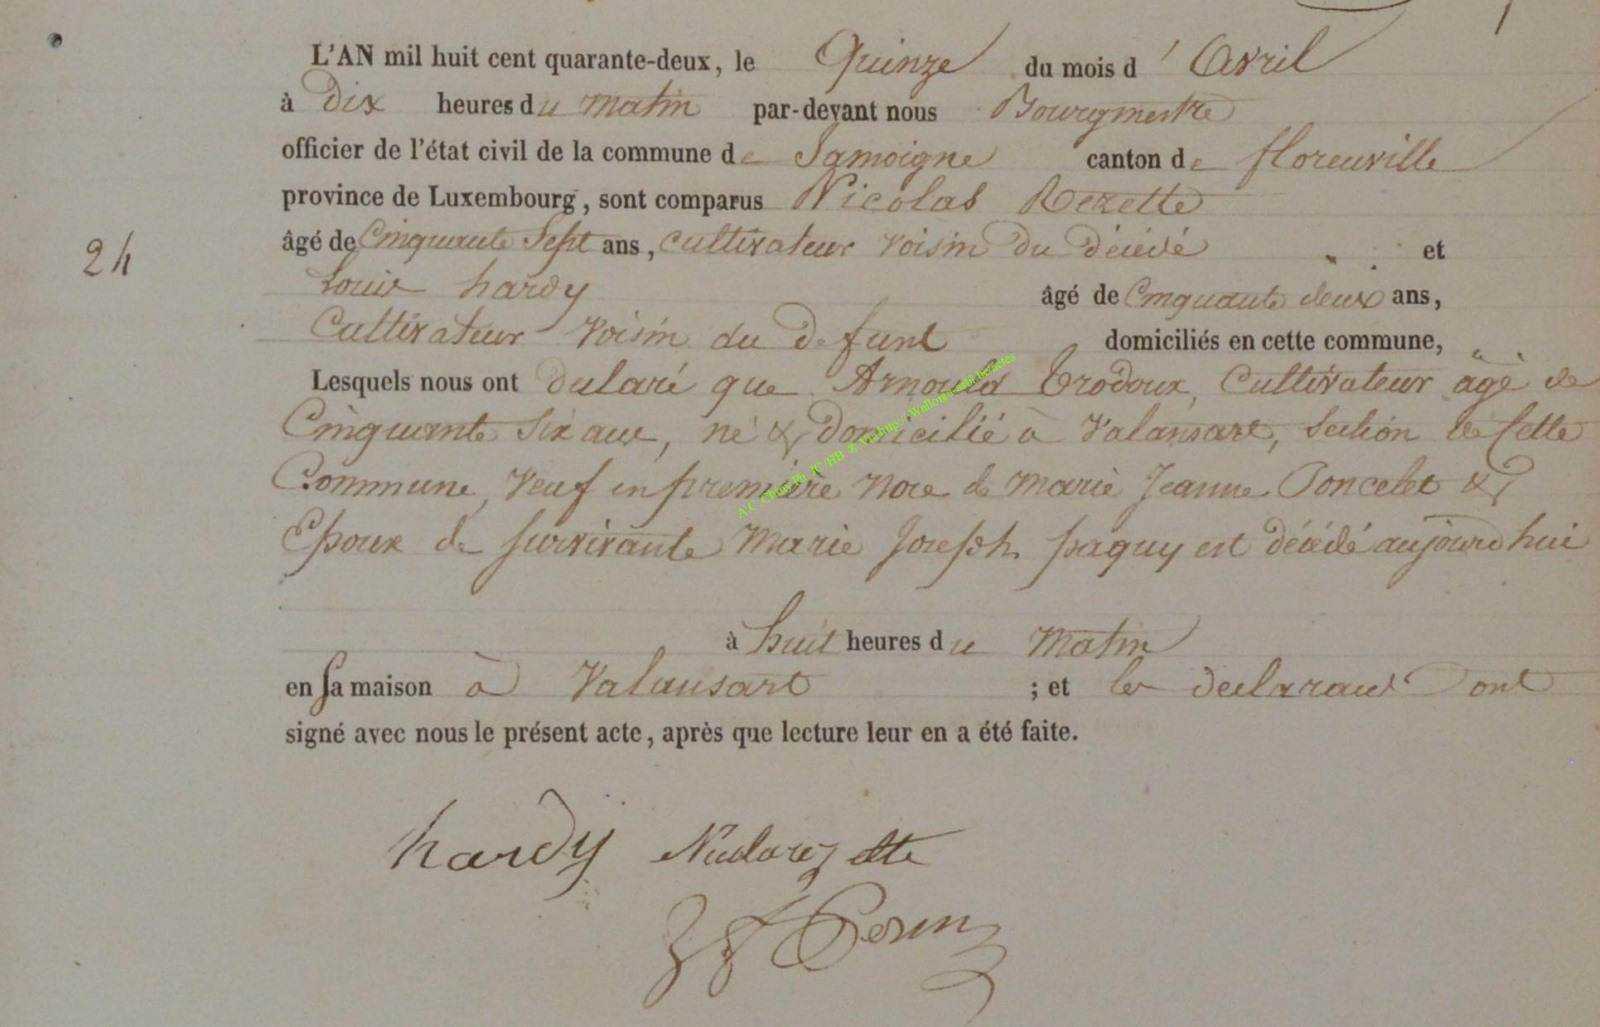 L'AN mil huit cent quarante-deux, le Quinze du mois d' Avril
à Dix heures du matin par-devant nous Bourgmestre
officier de l'état civil de la commune de Jamoigne canton de florenville
province de Luxembourg, sont comparus Nicolas Rezette
âgé de Cinquante Sept ans, cultivateur voisin du décédé et
24
Louis hardy âgé de Cinquante deux ans,
Cultivateur Voisin du défunt domiciliés en cette commune,
Lesquels nous ont déclaré que Arnould Trodoux, Cultivateur agé de
Cinquante Six ans, né & domicilié à Valansart, Section de Cette
Commune, Veuf en première Noce de Marie Jeanne Poncelet &
Epoux de survivante Marie Joseph paquy est décédé aujourd'hui
à huit heures du Matin
en sa maison à Valansart ; et les declarants ont
signé avec nous le présent acte, après que lecture leur en a été faite.
hardy Nicolas rezette